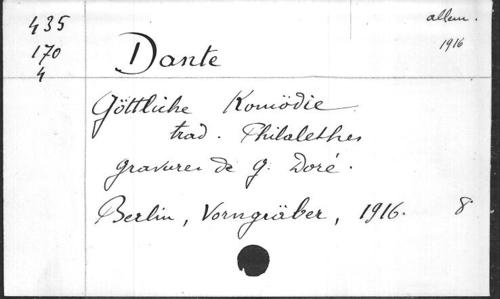 435
170
4
allem.
1916
Dante
Göttliche Komödie
trad. Philalethes
gravures de G. Doré.
Berlin, Vorngräber, 1916. 8